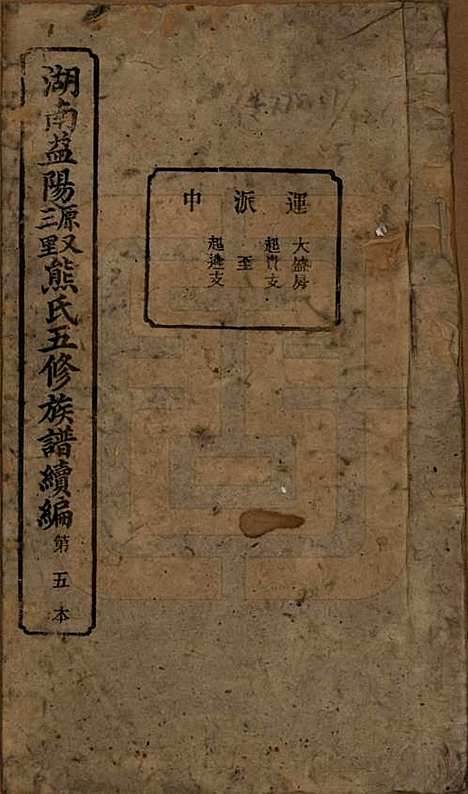 湖南益陽三里源又熊氏五修族譜續編 第五本
運派中
大盛房
起貴支
至
起進支